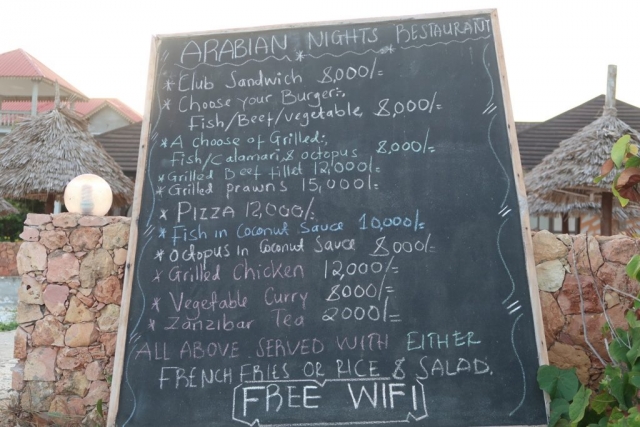 ARABIAN NIGHTS RESTAURANT
* Club Sandwich 8,000/=
* Choose your Burger:,
Fish/Beef/vegetable, 8,000/=
* A choose of Grilled:,
Fish/calamari, & octopus 8,000/=
* Grilled Beef fillet 12,000/=
* Grilled prawns 15,000/=
* PIZZA 12,000/=
* Fish in Coconut Sauce 10,000/=
* Octopus in Coconut Sauce 8,000/=
* Grilled Chicken 12,000/=
* Vegetable Curry 8000/=
* Zanzibar Tea 2000/=
ALL ABOVE SERVED WITH EITHER
FRENCH FRIES OR RICE & SALAD.
FREE WIFI